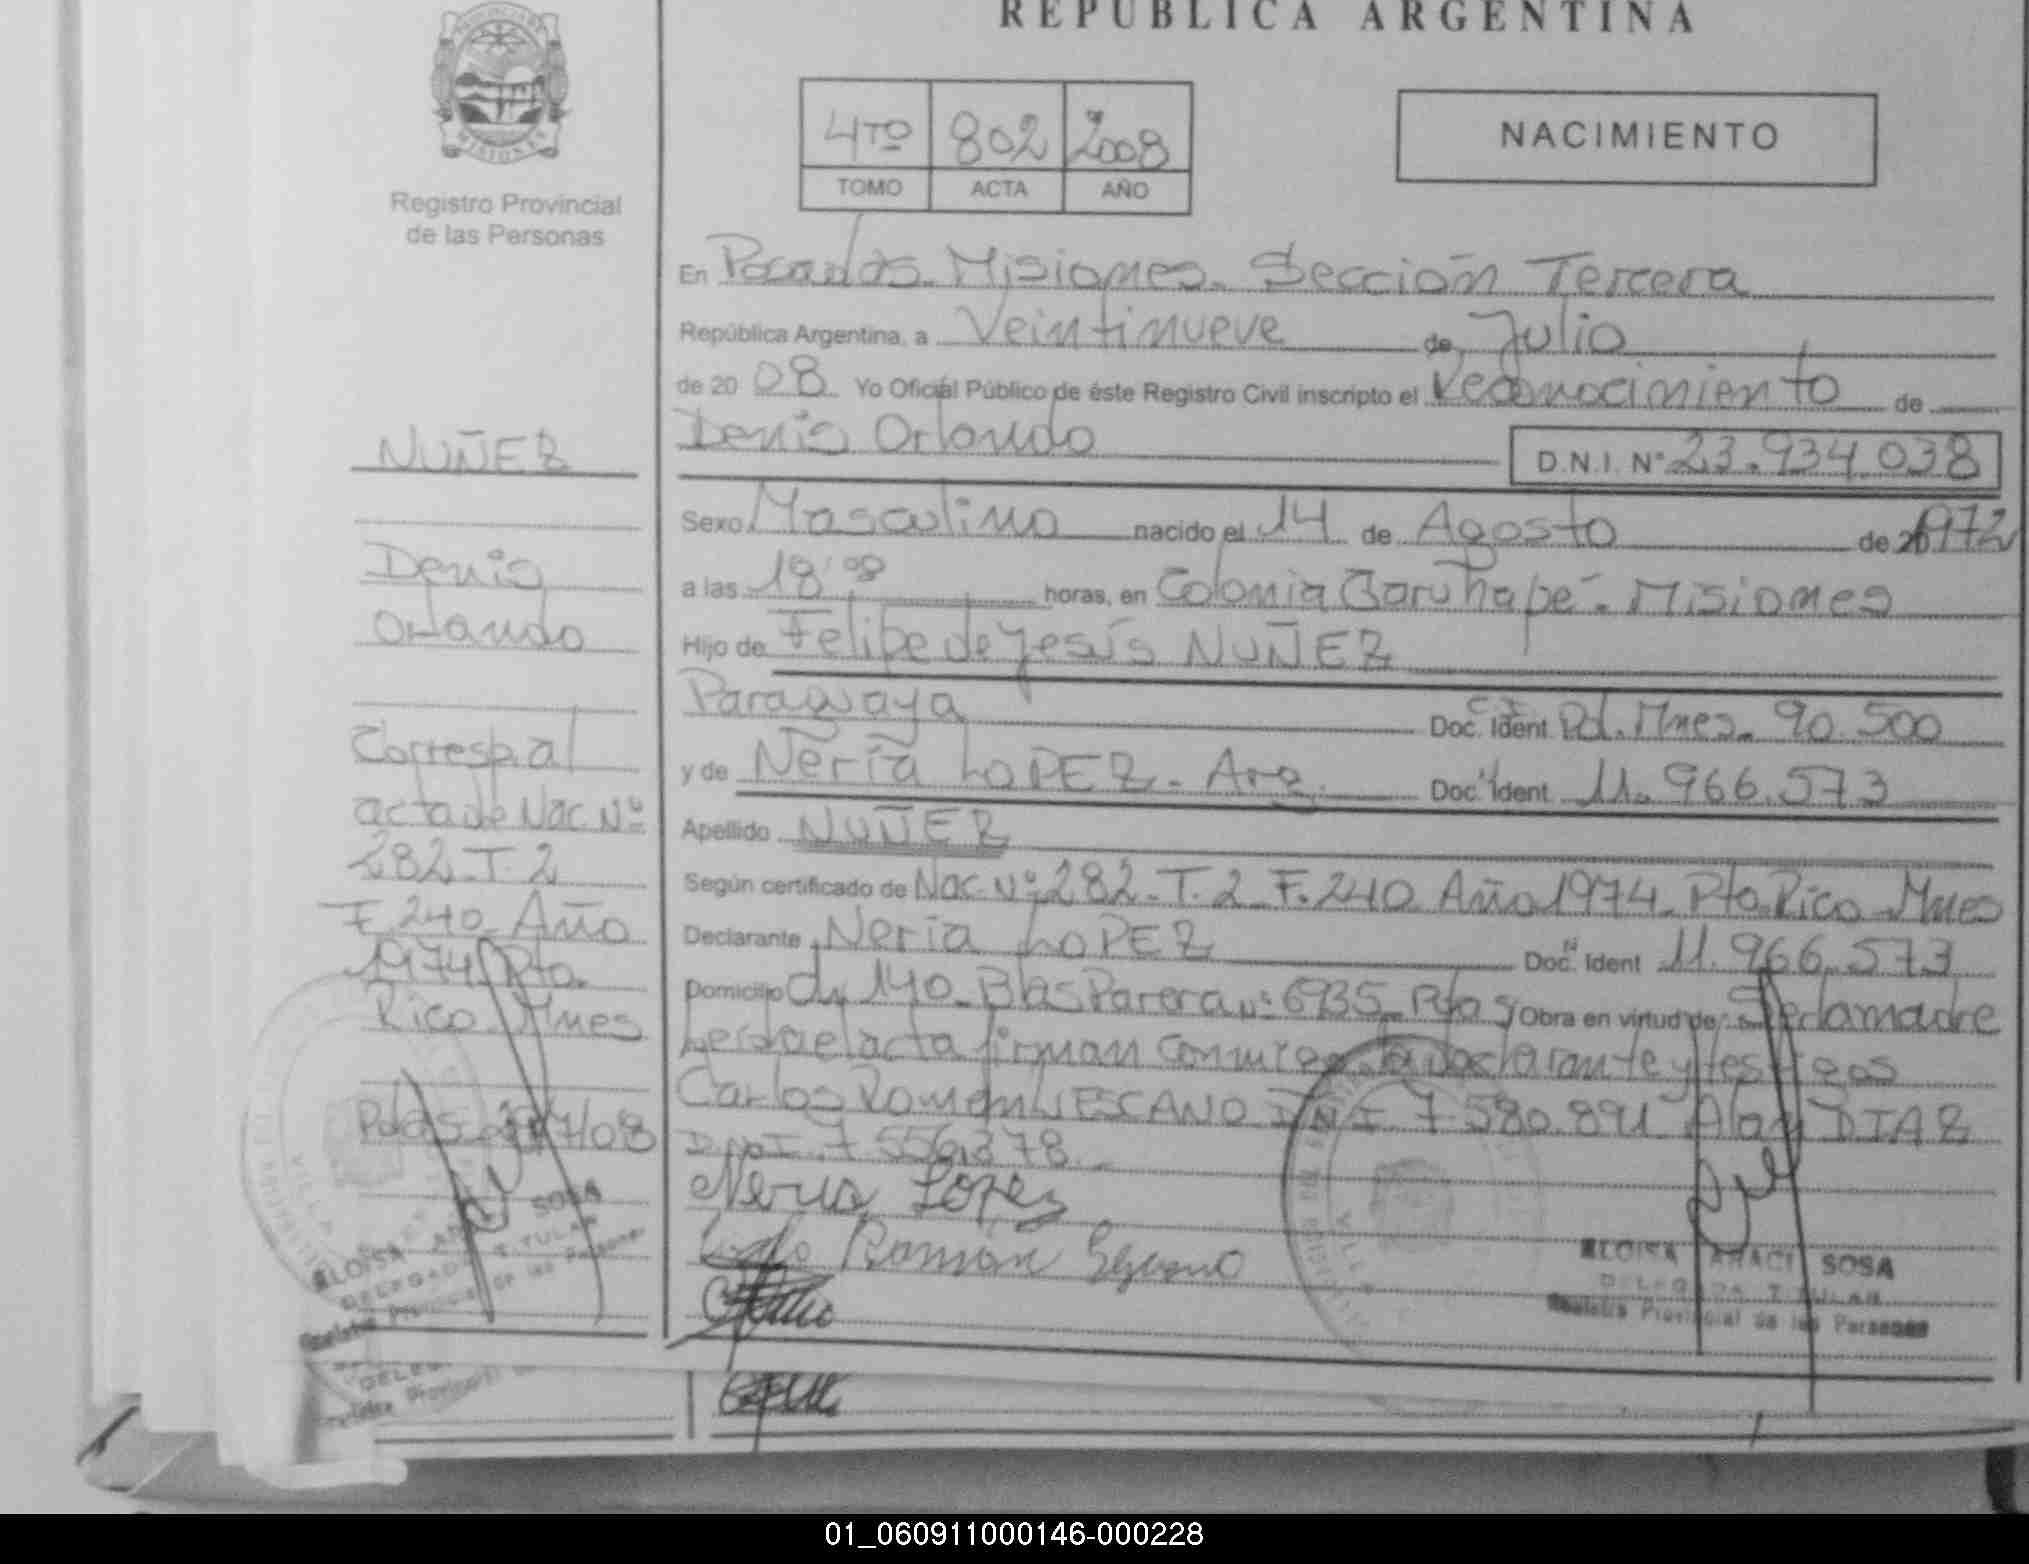 REPUBLICA ARGENTINA
PROVINCIA DE
MISIONES
Registro Provincial
de las Personas
4TO 802 2008
TOMO ACTA AÑO
NACIMIENTO
En Posadas. Misiones. Sección Tercera
República Argentina, a Veintinueve de Julio
de 20 08 Yo Oficial Público de éste Registro Civil inscripto el Reconocimiento de
Denis Orlando D.N.I. N° 23.934.038
Sexo Masculino nacido el 14 de Agosto de 1972
a las 18:08 horas, en Colonia Garuhapé. Misiones
Hijo de Felipe de Jesús NUÑEZ
Paraguaya Doc. Ident C I Pol. Mnes. 90.500
y de Neria LOPEZ. Arg. Doc. Ident 11.966.573
Apellido NUÑEZ
Según certificado de Nac. Nº 282. T. 2. F. 240 Año 1974. Pto. Rico Mnes
Declarante Neria LOPEZ Doc. Ident 11.966.573
Domicilio Ch 140. Blas Parera Nº 6935. Pdas y Obra en virtud de Ser la madre
Leída el acta firman conmigo la declarante y testigos
Carlos Roman LESCANO DNI 7.580.891 DIAZ
DNI. 7.556.378
Neria Lopez
Roman
ALOISA ARACI SOSA
DELEGADA TITULAR
Registro Provincial de las Personas
NUÑEZ
Denis
Orlando
Corresp. al
acta de Nac. Nº
282. T. 2
F. 240 Año
1974. Pto.
Rico. Mnes
ALOISA SOSA
DELEGADA TITULAR
Registro Provincial de las Personas
01_060911000146-000228